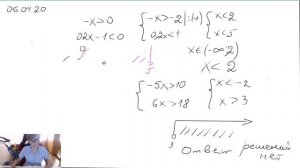 06.04.20
-x>0
0,2x-1<0
0
5
{-x>-2 |:(-1)
0,2x<1
{x<2
x<5
x∈(-∞;2)
x<2
{-5x>10
6x>18
{x<-2
x>3
3
Ответ решений
нет